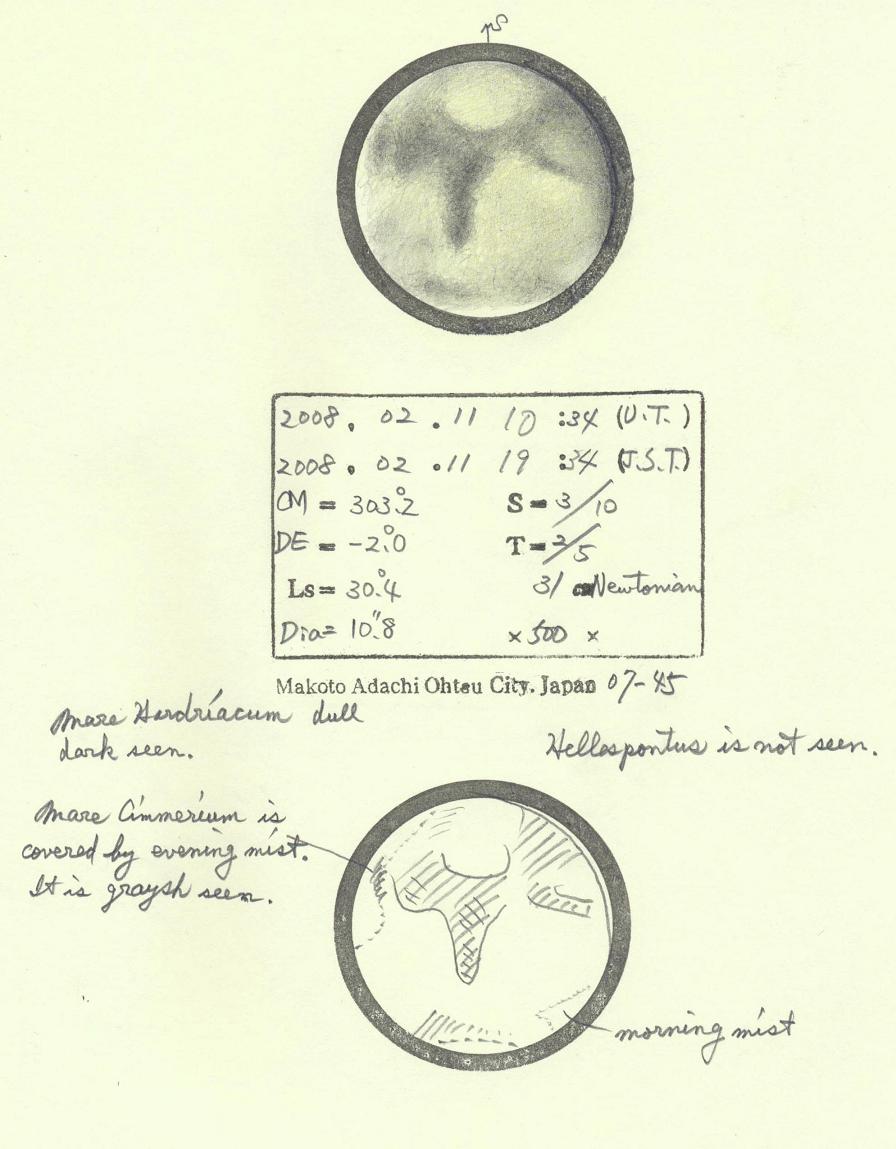 pS
2008. 02. 11 10 :34 (U.T.)
2008. 02. 11 19 :34 (J.S.T.)
CM = 303.°2 S = 3/10
DE = -2.°0 T = 2/5
Ls = 30.°4 31 cm Newtonian
Dia = 10."8 × 500 ×
Makoto Adachi Ohtsu City. Japan 07-45
Mare Hardriacum dull
dark seen.
Hellespontus is not seen.
Mare Cimmerium is
covered by evening mist.
It is graysh seen.
morning mist